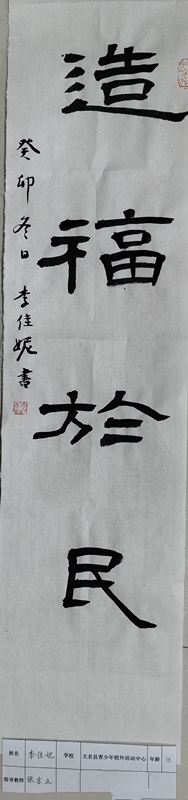 造福於民
癸卯冬日 李佳妮書
姓名 李佳妮 学校 大名县青少年校外活动中心 年龄
指导教师